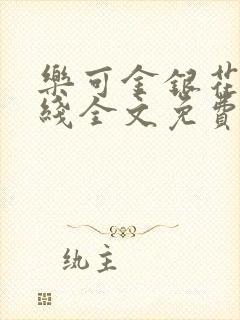 樂可金銀花
綫全文免費
纨主